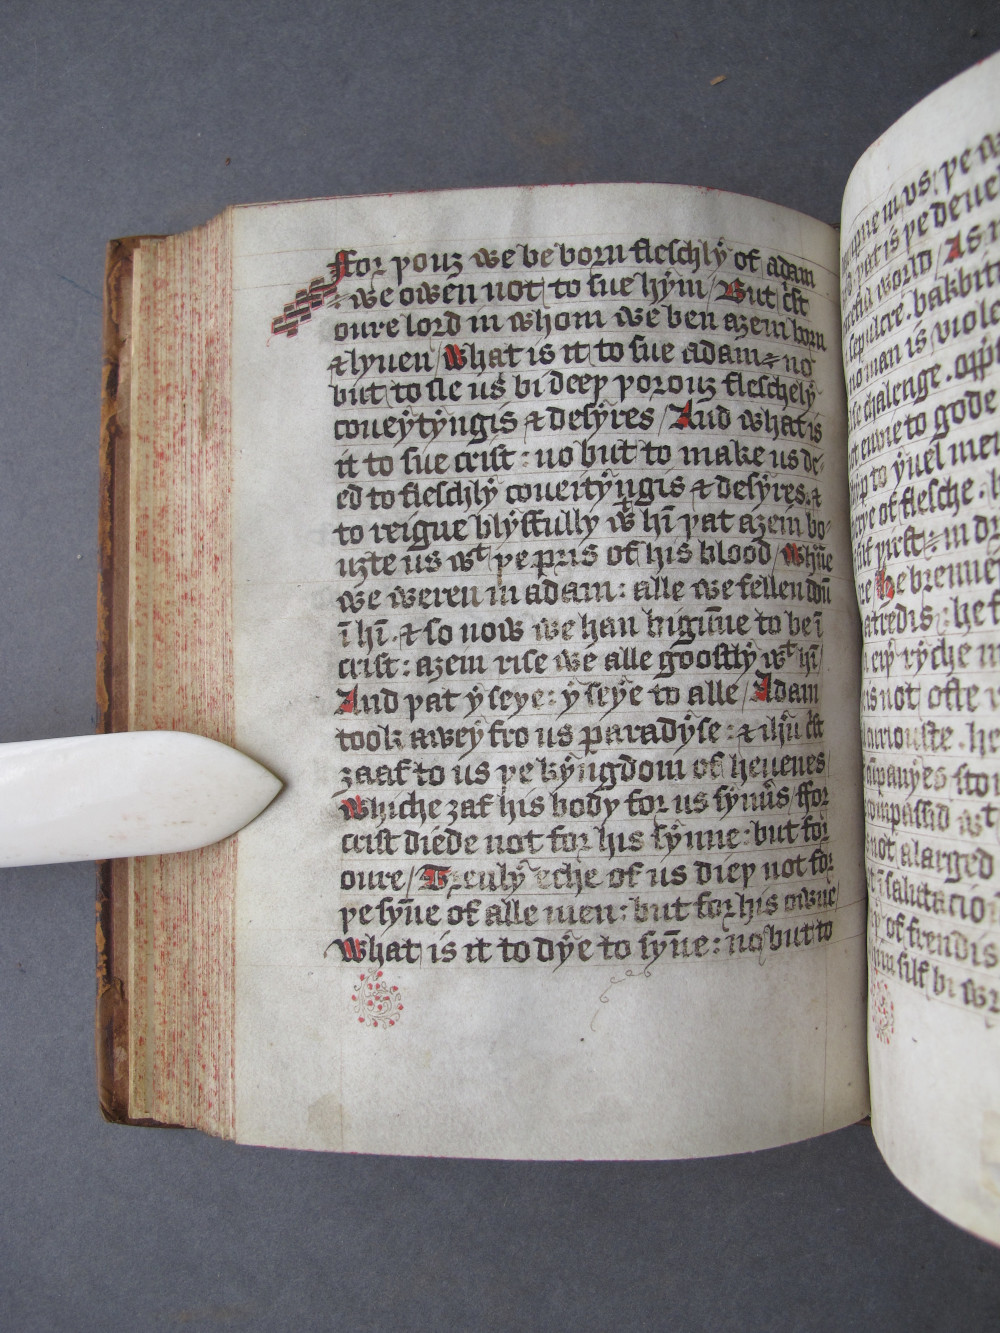 ffor þouȝ we be born fleschlẏ of adam
we owen not to sue hẏm / But cr̄st
oure lord in whom we ben aȝein born
⁊ lyuen / What is it to sue adam no
but to sle us bi deep þorouȝ fleschelẏ
coueẏtẏngis ⁊ desẏres / And what is
it to sue crist : no but to make us de
ed to fleschlẏ coueitẏngis ⁊ desẏres . ⁊
to reigne blẏssfully wͭ hī þat aȝein bo
uȝte us wͭ þe pris of his blood / Whāne
we weren in adam : alle we fellen doū
ī hī . ⁊ so now we han bigūne to be ī
crist : aȝein rise we alle goostlẏ wͭ hī /
And þat ẏ seye : ẏ seẏe to alle / Adam
took aweẏ fro us paradẏse : ⁊ ihū cr̄st
ȝaaf to us þe kẏngdom of heuenes /
Whiche ȝaf his body for us sẏnūs / ffor
crist diede not for his sẏnne : but for
oure / Treulẏ eche of us diep not for
þe sẏn̄e of alle men : but for his owne
What is it to dẏe to sẏn̄e : no but to
in us / þe
þat is þe deuel
world / As
sepulcre . bakbit
no man is viole
chalenge .
enuie to gode
to ẏuel men
of flesche .
þirst in
he brenneþ
hatredis : he
rẏche
is not / ofte
curiouste . he
compassid wͭ
not / alarged
ī salutacio
of frendis
silf bi